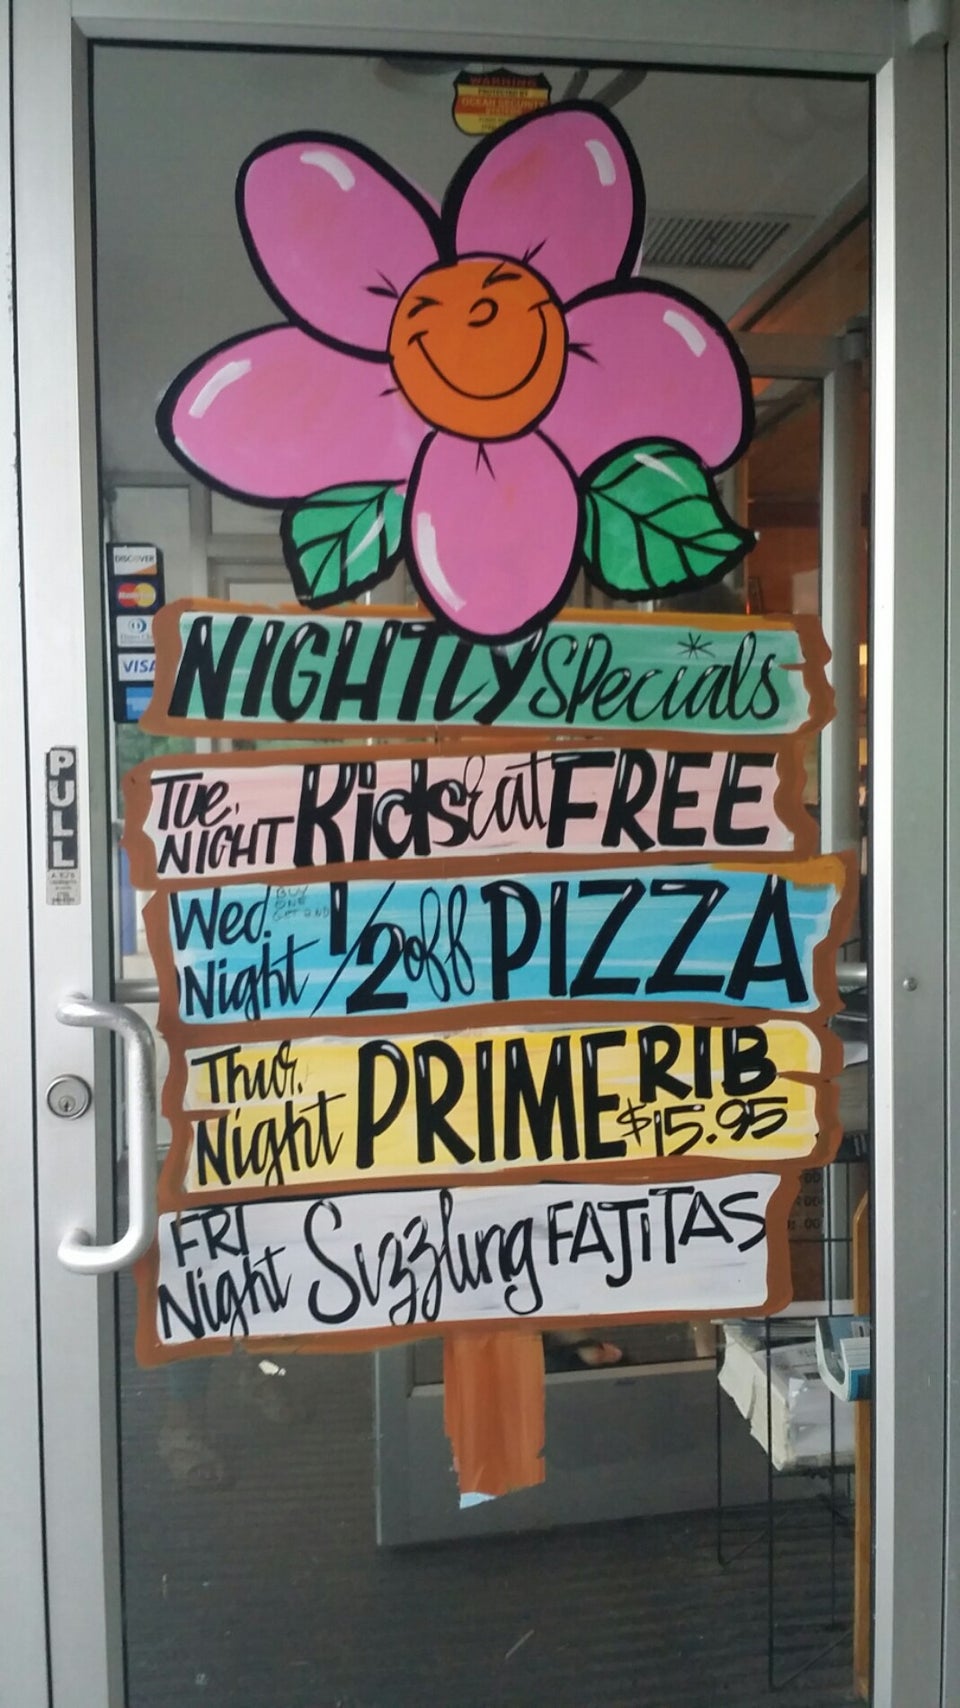 WARNING
PROTECTED BY
OCEAN SECURITY
DISCOVER
MasterCard
VISA
NIGHTLY Specials
PULL
Tue. NIGHT Kids Eat FREE
Wed. Night BUY ONE GET 2ND 1/2 off PIZZA
Thur. Night PRIME RIB $15.95
FRI Night Sizzling FAJITAS